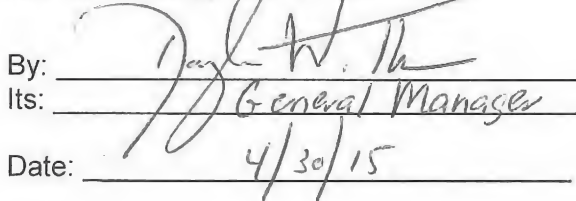 By: W.
Its: General Manager
Date: 4/30/15